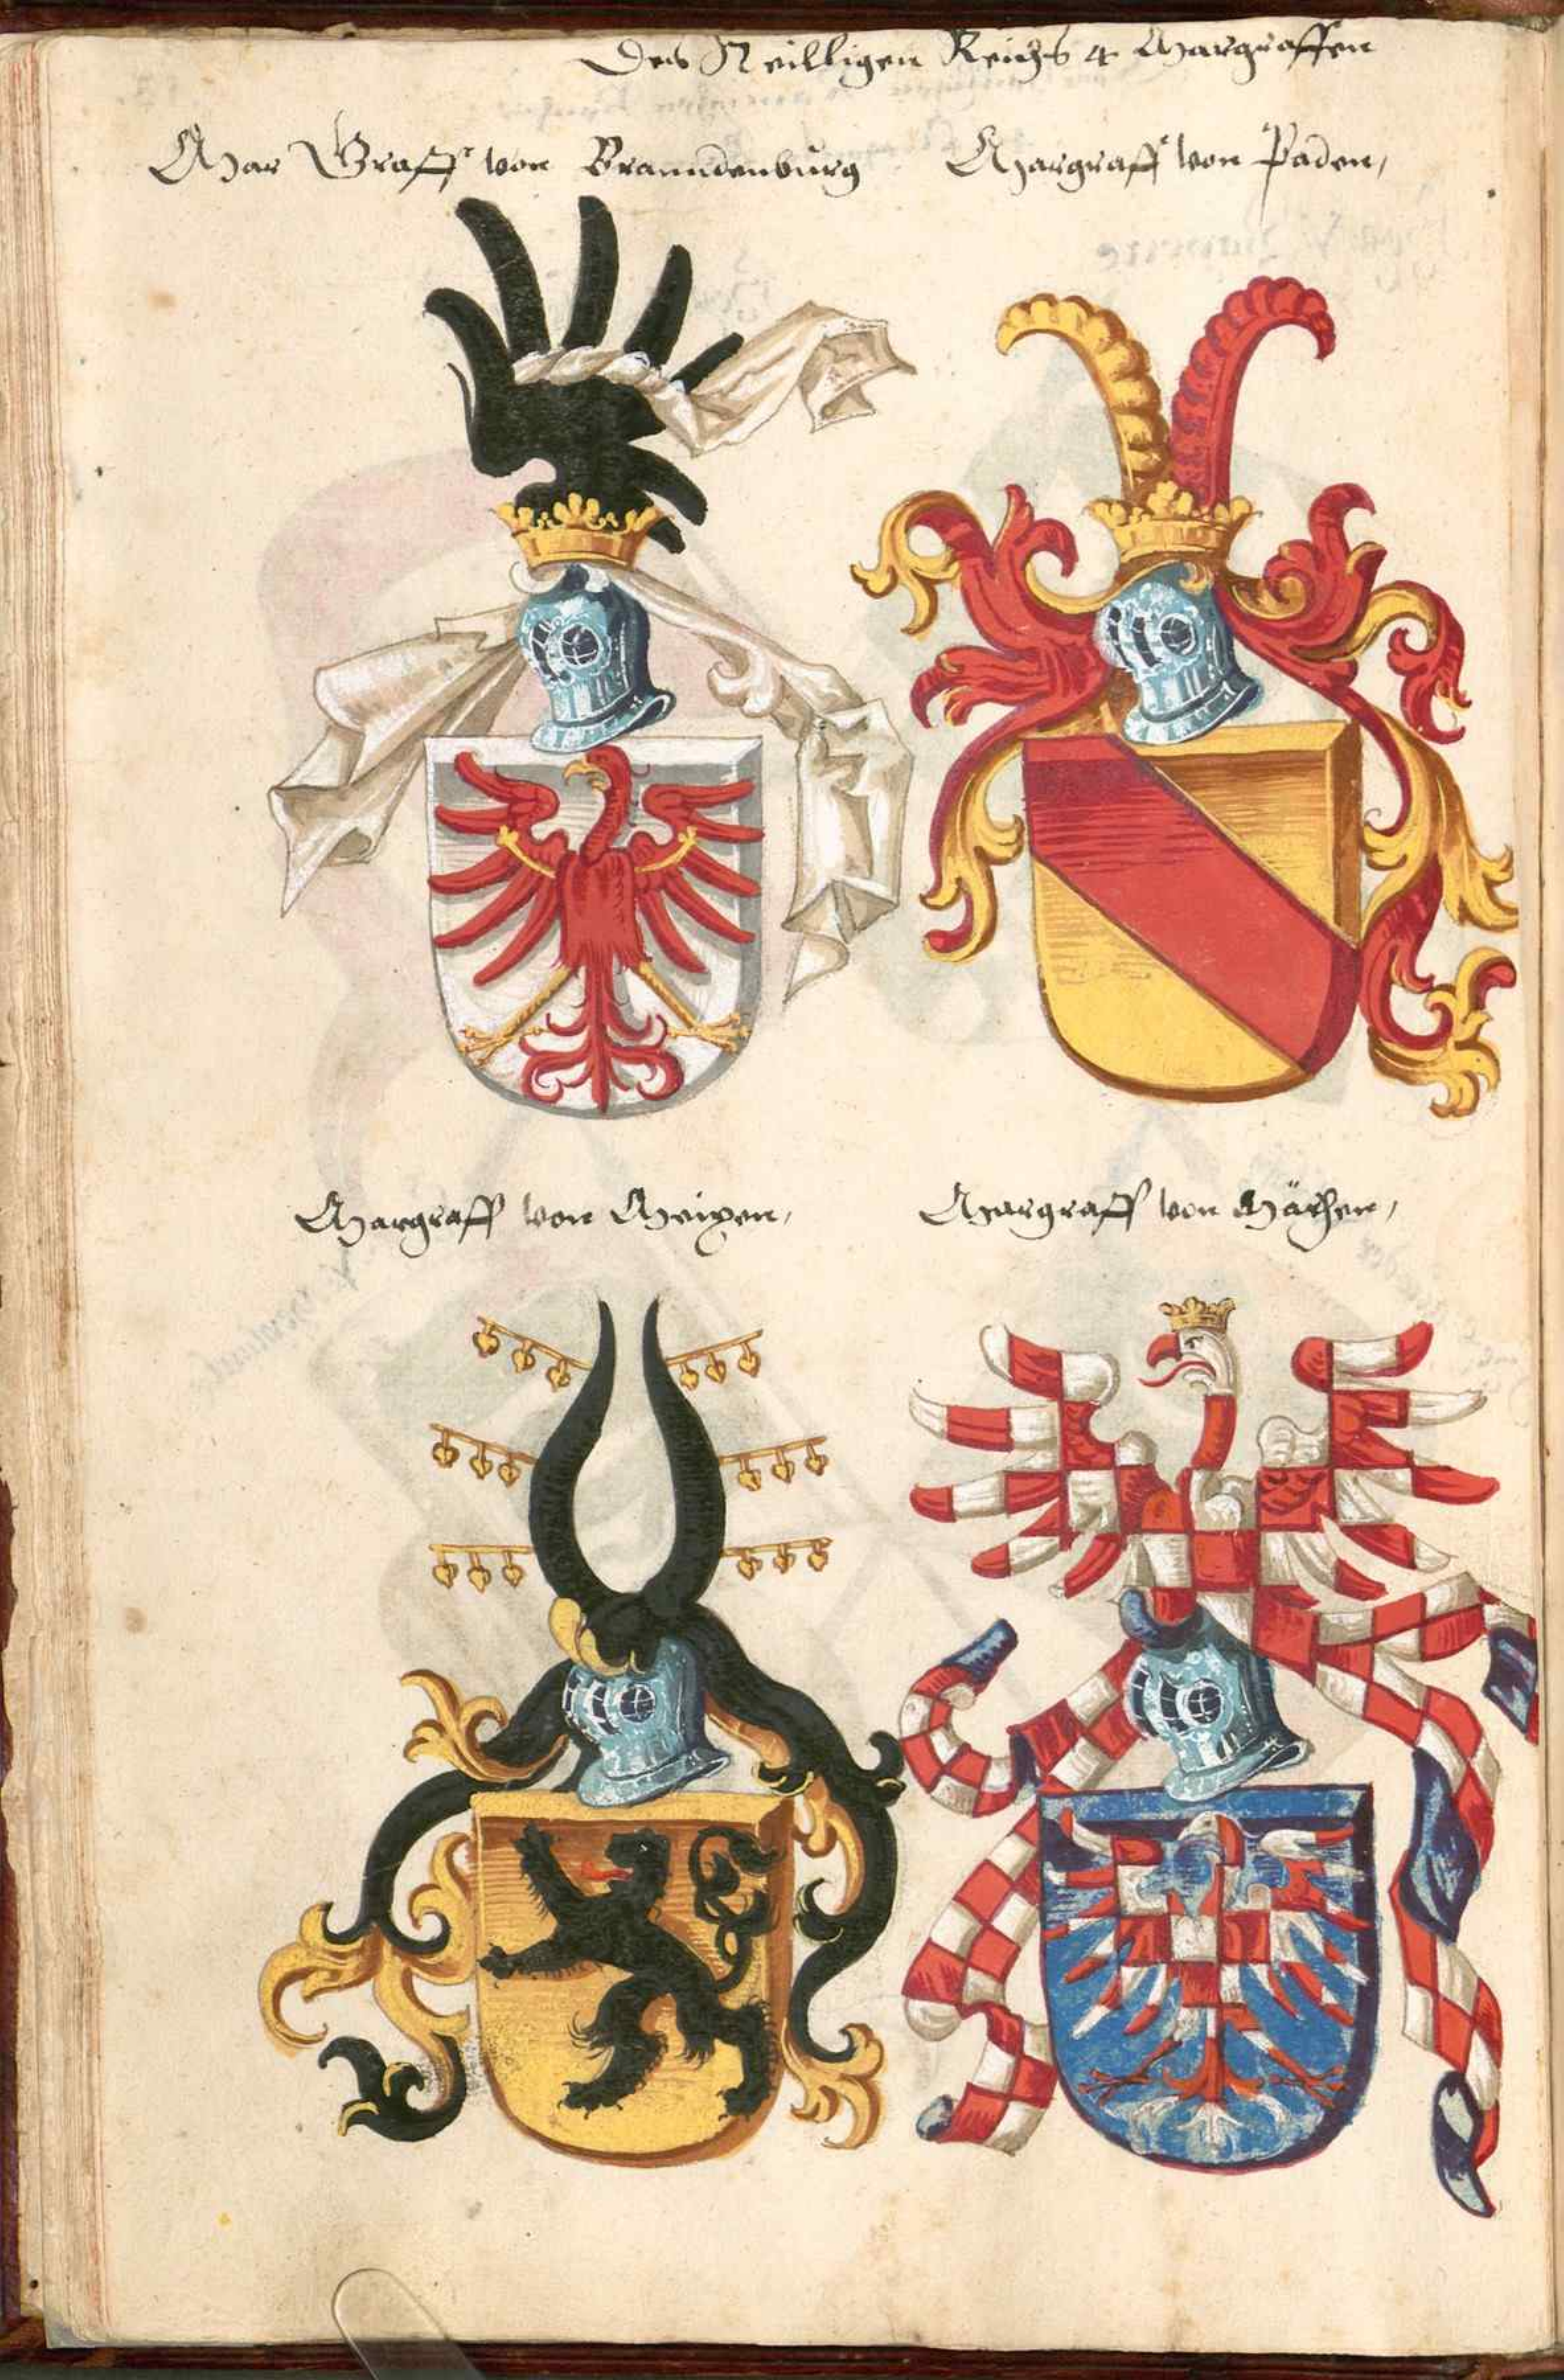 Des Heilligen Reichs 4 Margraffen
Mar Graff von Brannndenburg
Margraff von Paden,
Margraff von Meixen,
Margraff von Märhen,